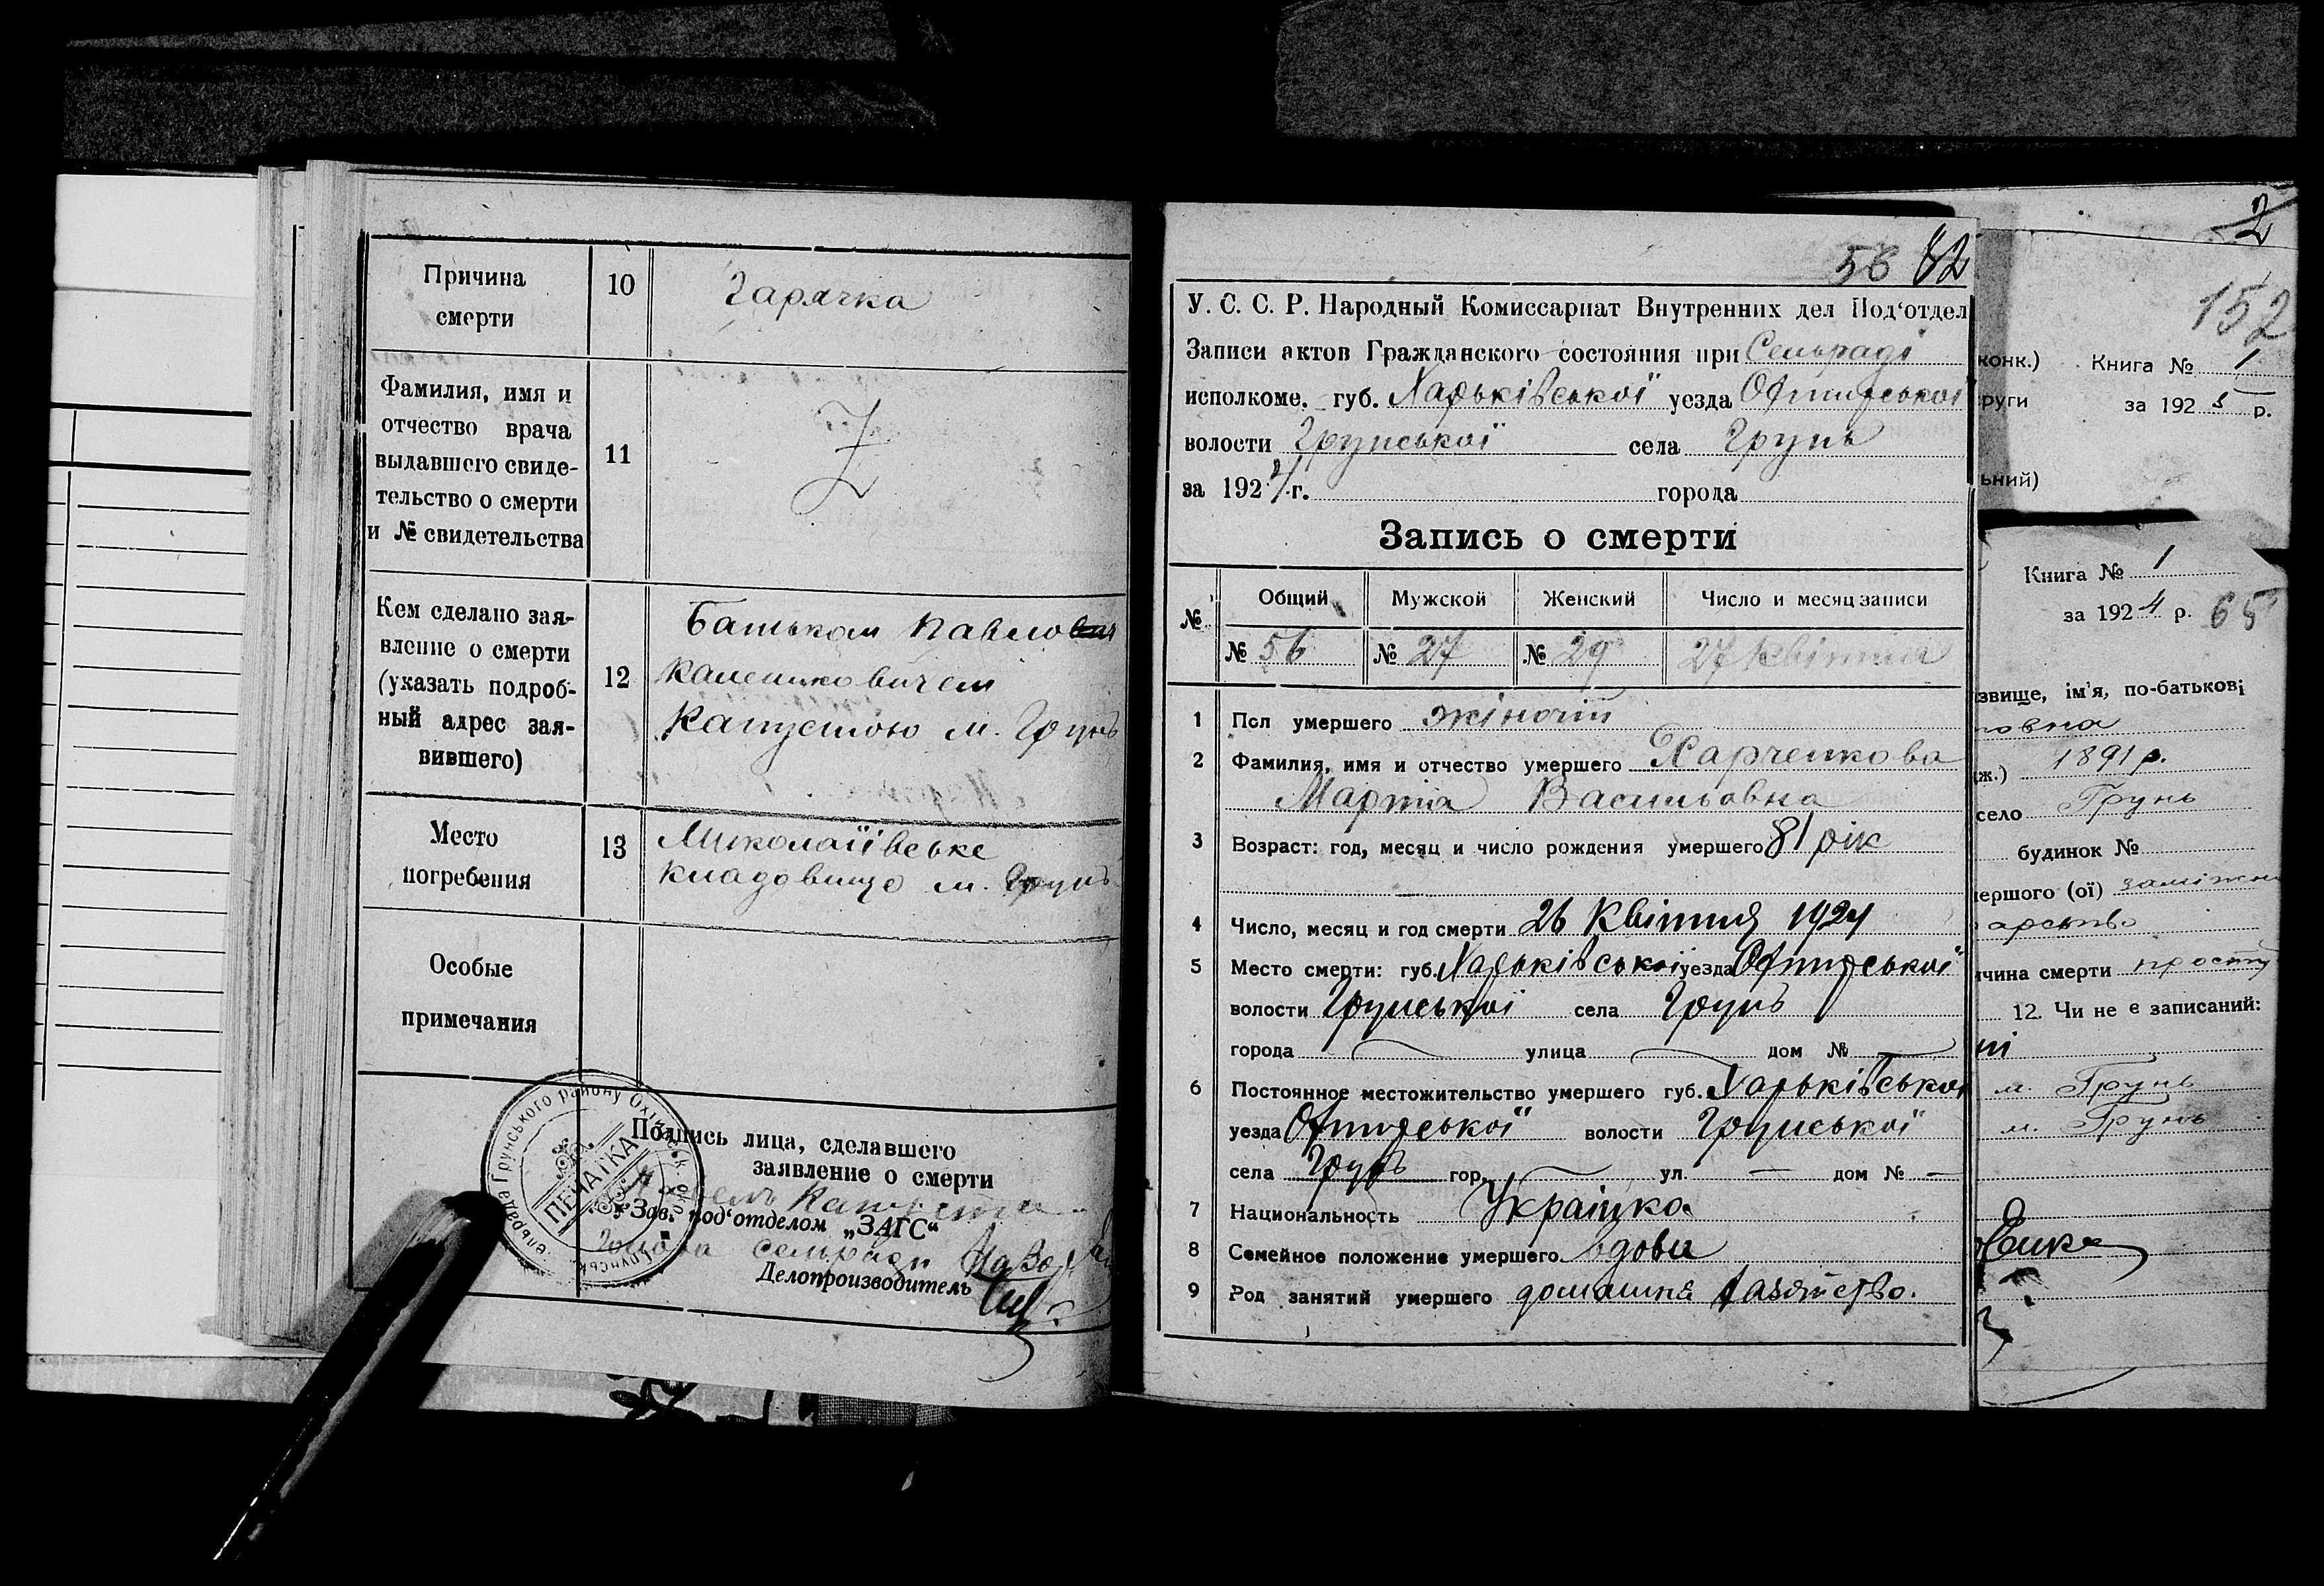 Причина
смерти
10
Гарячка
Фамилия, имя и
отчество врача
выдавшего свиде-
тельство о смерти
и № свидетельства
11
Кем сделано зая-
вление о смерти
(указать подроб-
ный адрес зая-
вившего)
12
Батьком Павлом
Капустою м. Грунь
Место
погребения
13
Миколаївське
кладовище м. Грунь
Особые
примечания
Подпись лица, сделавшего
заявление о смерти
Капуста
Зав. под‘отделом „ЗАГС“
Голова сельради
Делопроизводитель
ПЕЧАТКА
Грунського району
56 82
У. С. С. Р. Народный Комиссариат Внутренних дел Под‘отдел
Записи актов Гражданского состояния при Сельраді
исполкоме. губ. Харьківської уезда Охтирської
волости Грунської села Грунь
за 1924 г. города
Запись о смерти
№ Общий Мужской Женский Число и месяц записи
№ 56 № 27 № 29 27 Квітня
1 Пол умершего жіночій
2 Фамилия, имя и отчество умершего Харченкова
Марта Васильовна
3 Возраст: год, месяц и число рождения умершего 81 рік
4 Число, месяц и год смерти 26 Квітня 1924
5 Место смерти: губ. Харьківської уезда Охтирської
волости Грунської села Грунь
города улица дом №
6 Постоянное местожительство умершего губ. Харьківської
уезда Охтирської волости Грунської
села Грунь гор. ул. — дом № —
7 Национальность Українка
8 Семейное положение умершего вдова
9 Род занятий умершего домашнє хазяйство.
2
152
конк.) Книга № 1
руги за 192 р.
ьний)
Книга № 1
за 1924 р. 65
звище, ім’я, по-батькові
овна
ж.) 1891 р.
село Грунь
будинок №
ершого (ої) заміжня
арство
ичина смерти
12. Чи не є записаний:
м. Грунь
м. Грунь